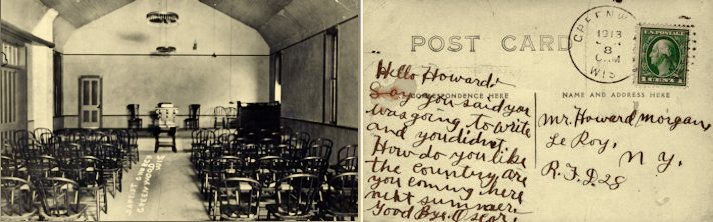 BAPTIST CHURCH
GREENWOOD WIS
POST CARD
GREENW
1913
8
AM
WIS
U.S. POSTAGE
CORRESPONDENCE HERE
NAME AND ADDRESS HERE
Hello Howard:
Say you said you
was going to write
and you didnt
How do you like
the country are
you coming here
next summer
Good Bye Oscar
Mr. Howard Morgan,
Le Roy, N.Y.
R.F.D 28